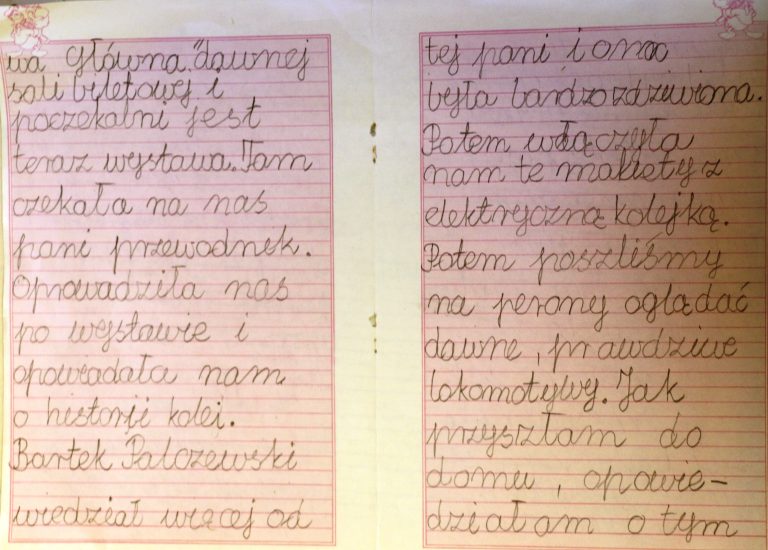 wa Główna." dawnej
sali biletowej i
poczekalni jest
teraz wystawa. Tam
czekała na nas
pani przewodnek.
Oprowadziła nas
po wystawie i
opowiadała nam
o historji kolei.
Bartek Palczewski
wiedział więcej od
tej pani i ona
była bardzo zdziwiona.
Potem włączyła
nam te makiety z
elektryczną kolejką.
Potem poszliśmy
na perony oglądać
dawne, prawdziwe
lokomotywy. Jak
przyszłam do
domu, opowie-
działam o tym